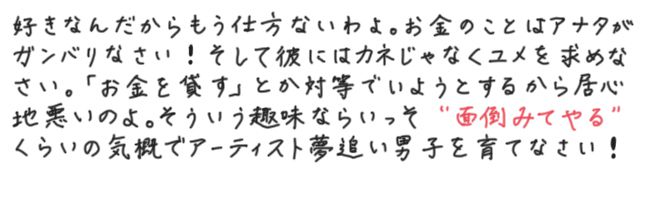 好きなんだからもう仕方ないわよ。お金のことはアナタが
ガンバりなさい！そして彼にはカネじゃなくユメを求めな
さい。「お金を貸す」とか対等でいようとするから居心
地悪いのよ。そういう趣味ならいっそ “面倒みてやる”
くらいの気概でアーティスト夢追い男子を育てなさい！